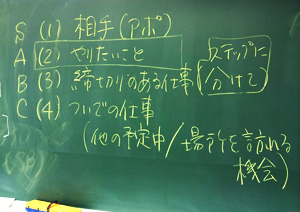 S (1) 相手(アポ)
A (2) やりたいこと
B (3) 締切りのある仕事
C (4) ついでの仕事
(他の予定中/場所を訪れる
機会)
ステップに
分けて